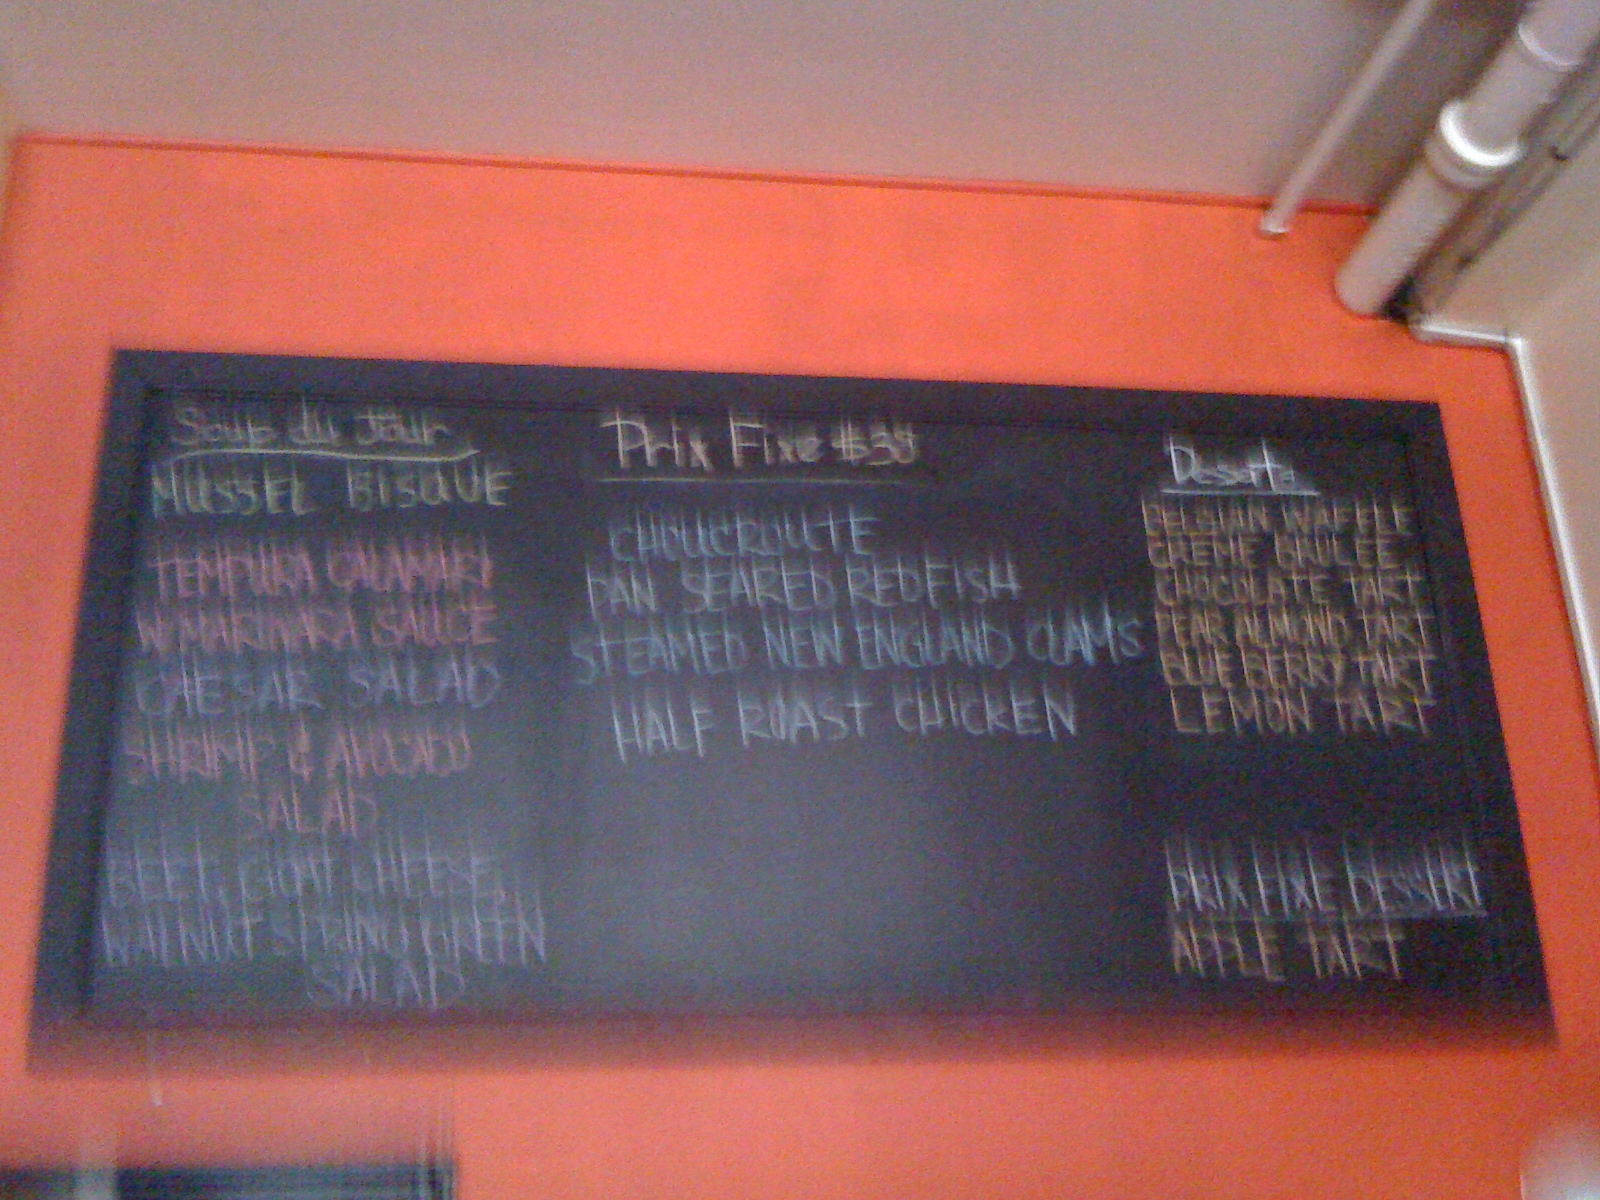 Soup du Jour
MUSSEL BISQUE
TEMPURA CALAMARI
W/MARINARA SAUCE
CAESAR SALAD
SHRIMP & AVOCADO
SALAD
BEET, GOAT CHEESE,
WALNUT SPRING GREEN
SALAD
Prix Fixe
CHOUCROUTE
PAN SEARED REDFISH
STEAMED NEW ENGLAND CLAMS
HALF ROAST CHICKEN
Desserts
BELGIAN WAFFLE
CREME BRULEE
CHOCOLATE TART
PEAR ALMOND TART
BLUE BERRY TART
LEMON TART
PRIX FIXE DESSERT
APPLE TART